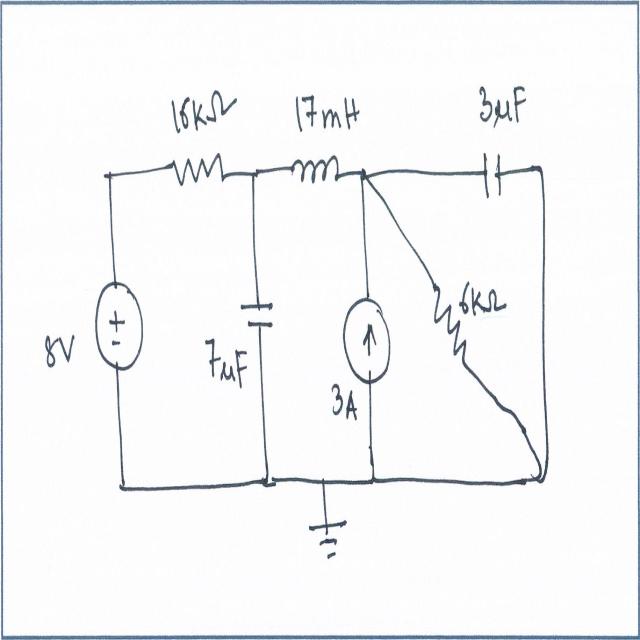 16kΩ
17mH
3µF
+
-
8V
7µF
3A
6kΩ